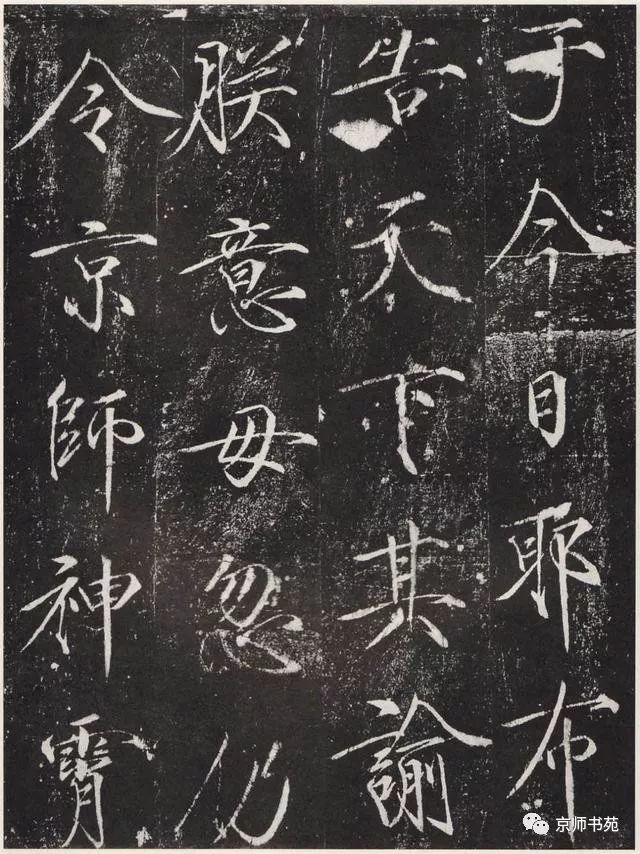 于今日耶布
告天下其諭
朕意毋忽仍
令京師神霄
京师书苑